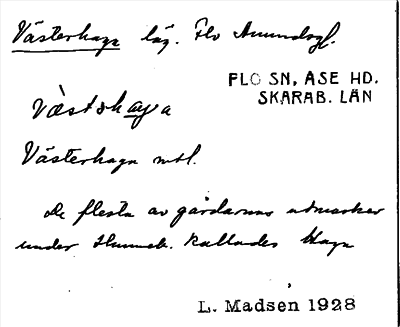 Västerhaga läg. Flo Amundsgl.
FLO SN, ÅSE HD.
SKARAB. LÄN
Västerhaga mtl.
de flesta av gårdarnas utmarker
under Hunneb. kallades Haga
L. Madsen 1928